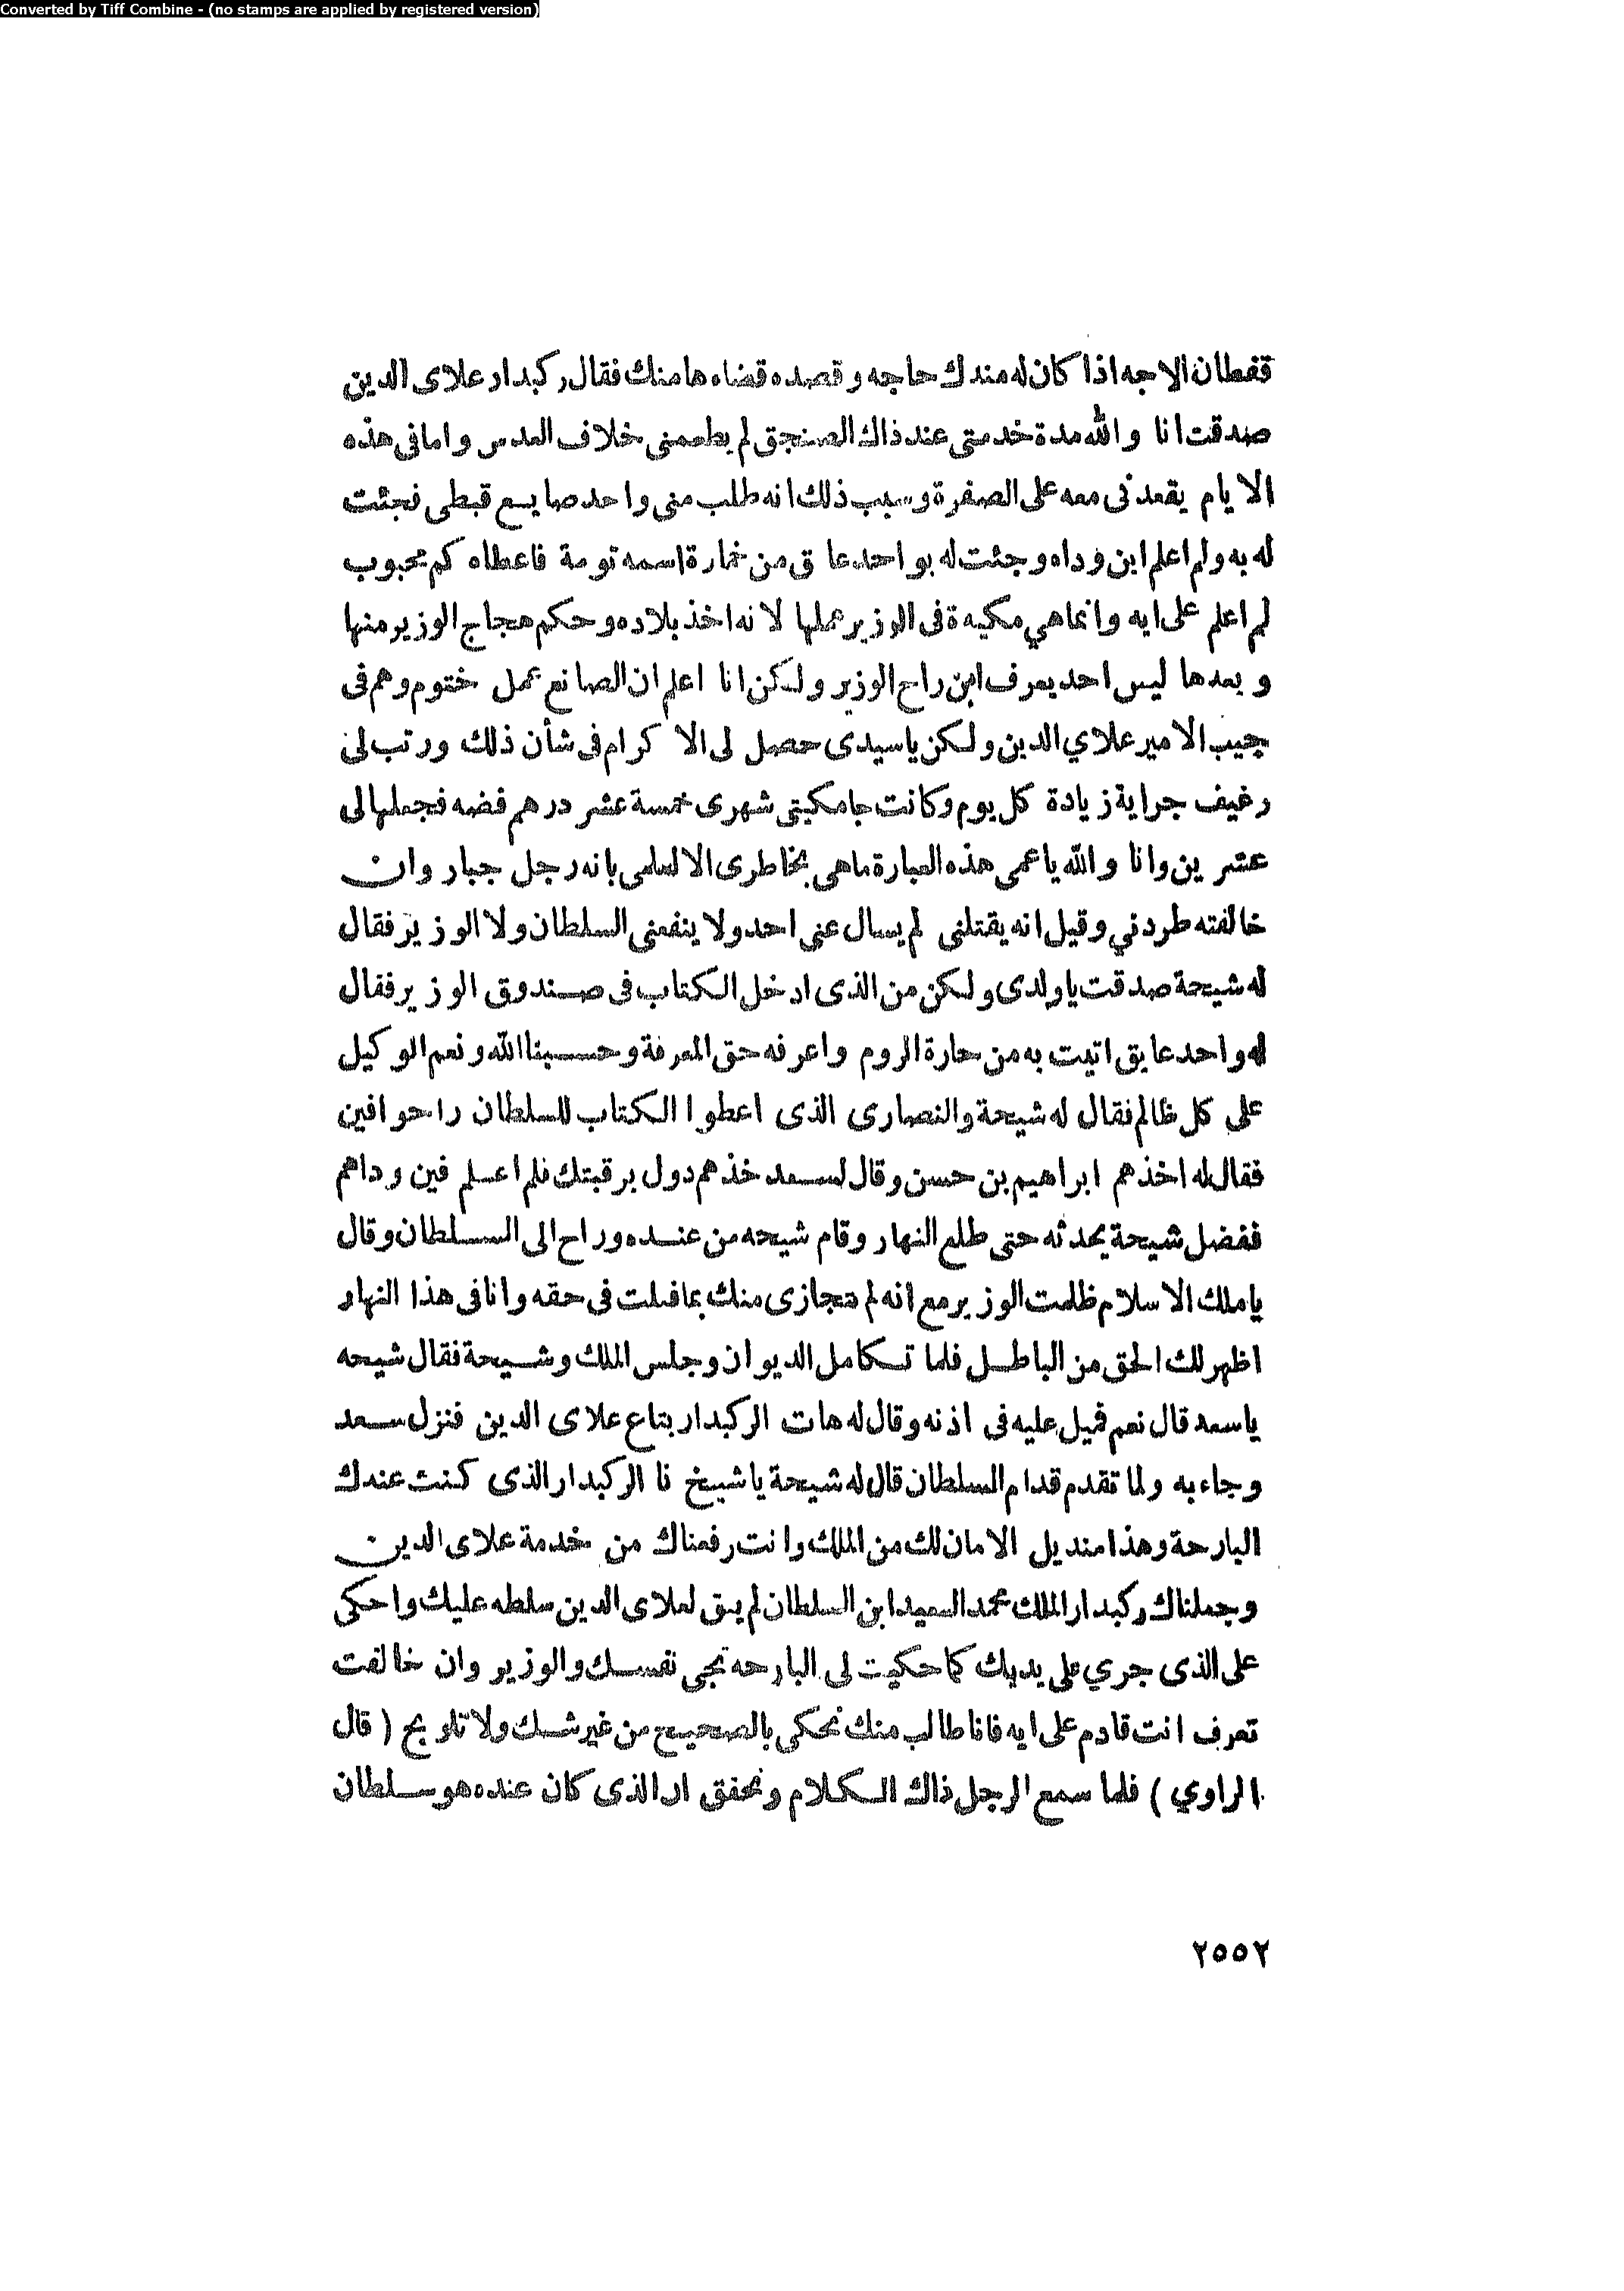 Converted by Tiff Combine - (no stamps are applied by registered version)
قفطان الاجه اذا كان له عندك حاجه وقصده قضاءها منك فقال ركبدار علاى الدين
صدقت انا والله مدة خدمتى عند ذاك الصنجق لم يطعمنى خلاف العدس واما فى هذه
الايام يقعدنى معه على الصفرة وسبب ذلك انه طلب منى واحد صايغ قبطى فجئت
له به ولم اعلم اين وداه وجئت له بواحد عاق من خمارة اسمه تومة فاعطاه كم محبوب
لم اعلم على ايه وانما هي مكيدة فى الوزير عملها لانه اخذ بلاده وحكم هجاج الوزير منها
وبعدها ليس احد يعرف اين راح الوزير ولكن انا اعلم ان الصانع عمل ختوم وهم فى
جيب الامير علاي الدين ولكن ياسيدى حصل لى الاكرام فى شأن ذلك ورتب لى
رغيف جراية زيادة كل يوم وكانت جامكيتى شهرى خمسة عشر درهم فضه فجعلها لى
عشرين وانا والله ياعمى هذه العبارة ماهى بخاطرى الا لعلمى بانه رجل جبار وان
خالفته طردني وقيل انه يقتلنى لم يسال عنى احد ولا ينفعنى السلطان ولا الوزير فقال
له شيحة صدقت ياولدى ولكن من الذى ادخل الكتاب فى صندوق الوزير فقال
له واحد عايق اتيت به من حارة الروم واعرفه حق المعرفة وحسبنا الله ونعم الوكيل
على كل ظالم فقال له شيحة والنصارى الذى اعطوا الكتاب للسلطان راحوا فين
فقال له اخذهم ابراهيم بن حسن وقال لسعد خذهم دول برقبتك فلم اعلم فين وداهم
ففضل شيحة يحدثه حتى طلع النهار وقام شيحه من عنده وراح الى السلطان وقال
ياملك الاسلام ظلمت الوزير مع انه لم تجازى منك بما فعلت فى حقه وانا فى هذا النهار
اظهر لك الحق من الباطل فلما تكامل الديوان وجلس الملك وشيحة فقال شيحه
ياسعد قال نعم فميل عليه فى اذنه وقال له هات الركبدار بتاع علاى الدين فنزل سعد
وجاء به ولما تقدم قدام السلطان قال له شيحة ياشيخ نا الركبدار الذى كنت عندك
البارحة وهذا منديل الامان لك من الملك وانت رفعناك من خدمة علاى الدين
وجعلناك ركبدار الملك محمد السعيد ابن السلطان لم يبق لعلاى الدين سلطه عليك واحكى
على الذى جري على يديك كما حكيت لى البارحه تجى نفسك والوزير وان خالفت
تعرف انت قادم على ايه فانا طالب منك تحكى بالصحيح من غير شك ولا تلويح ( قال
الراوي ) فلما سمع الرجل ذاك الكلام وتحقق ان الذى كان عنده هو سلطان
٢٥٥٢